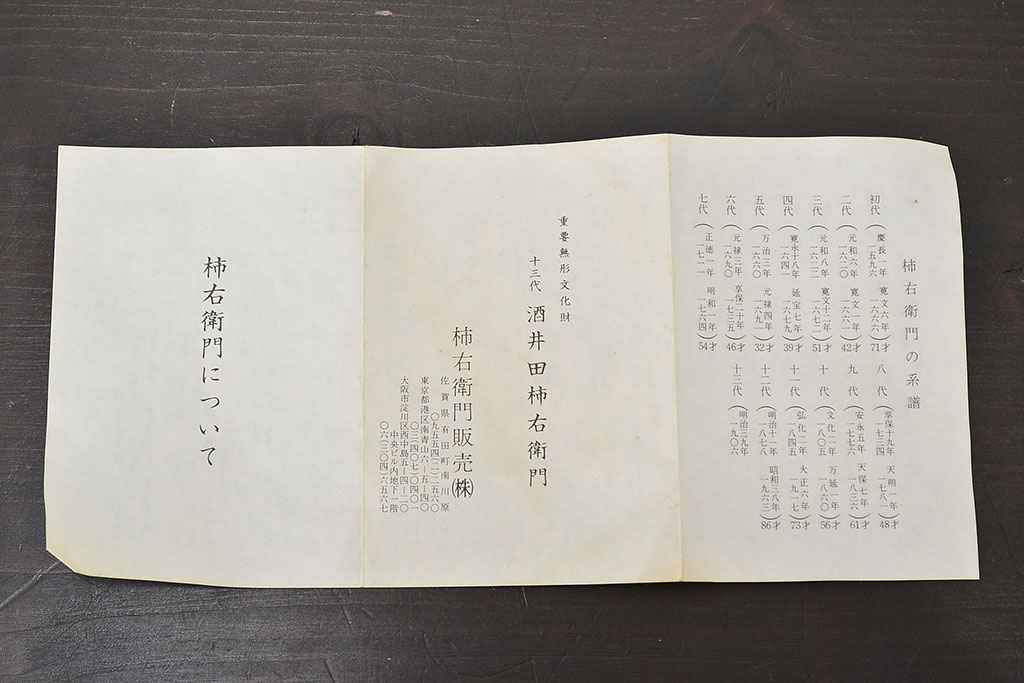 柿右衛門の系譜
初代(慶長一年 一五九六 寛文六年 一六六六)71才
二代(元和六年 一六二〇 寛文一年 一六六一)42才
三代(元和八年 一六二二 寛文十二年 一六七二)51才
四代(寛永十八年 一六四一 延宝七年 一六七九)39才
五代(万治三年 一六六〇 元禄四年 一六九一)32才
六代(元禄三年 一六九〇 享保二十年 一七三五)46才
七代(正徳一年 一七一一 明和一年 一七六四)54才
八代(享保十九年 一七三四 天明一年 一七八一)48才
九代(安永五年 一七七六 天保七年 一八三六)61才
十代(文化二年 一八〇五 万延一年 一八六〇)56才
十一代(弘化二年 一八四五 大正六年 一九一七)73才
十二代(明治十一年 一八七八 昭和三八年 一九六三)86才
十三代(明治三九年 一九〇六
重要無形文化財
十三代 酒井田柿右衛門
柿右衛門販売㈱
佐賀県有田町南川原
〇九五五四(二)二五六〇
東京都港区南青山六ー五ー四〇
〇三(四〇七)〇四〇一
大阪市淀川区西中島五ー四ー二〇
中央ビル内地下一階
〇六(三〇四)六五六七
柿右衛門について